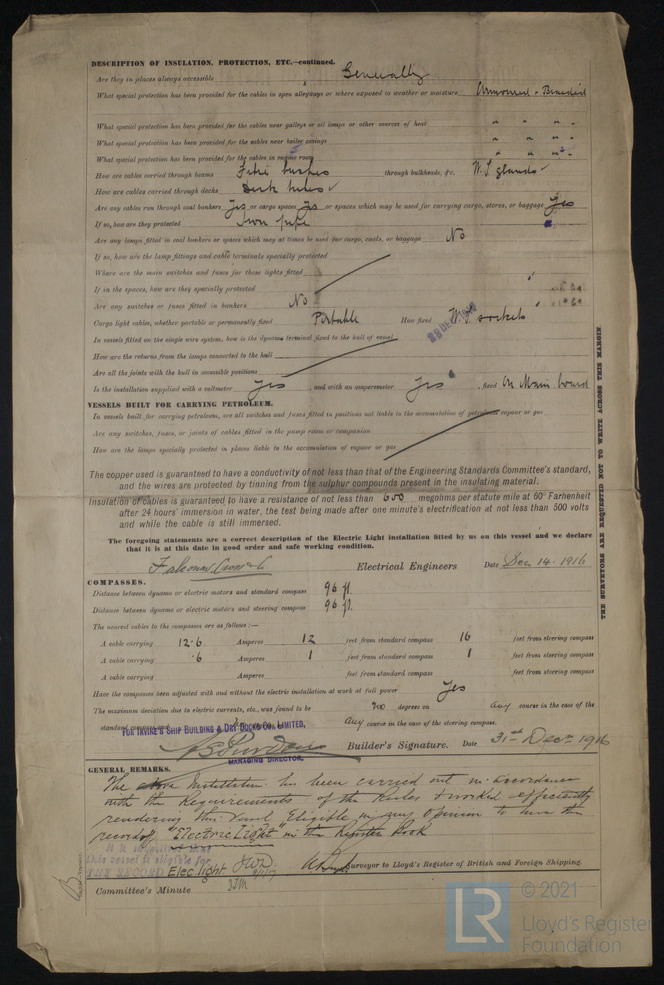 DESCRIPTION OF INSULATION, PROTECTION, ETC.—continued.
Are they in places always accessible Generally
What special protection has been provided for the cables in open alleyways or where exposed to weather or moisture Armoured & Braided
What special protection has been provided for the cables near galleys or oil lamps or other sources of heat " " "
What special protection has been provided for the cables near boiler casings " " "
What special protection has been provided for the cables in engine room " " "
How are cables carried through beams Fibre bushes through bulkheads, &c. W.T. glands ✓
How are cables carried through decks Deck tubes ✓
Are any cables run through coal bunkers Yes or cargo spaces Yes or spaces which may be used for carrying cargo, stores, or baggage Yes
If so, how are they protected Iron pipe
Are any lamps fitted in coal bunkers or spaces which may at times be used for cargo, coals, or baggage No
If so, how are the lamp fittings and cable terminals specially protected
Where are the main switches and fuses for these lights fitted
If in the spaces, how are they specially protected
Are any switches or fuses fitted in bunkers No
Cargo light cables, whether portable or permanently fixed Portable How fixed W.T. sockets
In vessels fitted on the single wire system, how is the dynamo terminal fixed to the hull of vessel
How are the returns from the lamps connected to the hull
Are all the joints with the hull in accessible positions
Is the installation supplied with a voltmeter Yes and with an amperemeter Yes fixed On Main board
VESSELS BUILT FOR CARRYING PETROLEUM.
In vessels built for carrying petroleum, are all switches and fuses fitted in positions not liable to the accumulation of petroleum vapour or gas
Are any switches, fuses, or joints of cables fitted in the pump room or companion
How are the lamps specially protected in places liable to the accumulation of vapour or gas
The copper used is guaranteed to have a conductivity of not less than that of the Engineering Standards Committee's standard,
and the wires are protected by tinning from the sulphur compounds present in the insulating material.
Insulation of cables is guaranteed to have a resistance of not less than 600 megohms per statute mile at 60° Farhenheit
after 24 hours' immersion in water, the test being made after one minute's electrification at not less than 500 volts
and while the cable is still immersed.
The foregoing statements are a correct description of the Electric Light installation fitted by us on this vessel and we declare
that it is at this date in good order and safe working condition.
Falconar, Cross & Co Electrical Engineers Date Dec 14. 1916
COMPASSES.
Distance between dynamo or electric motors and standard compass 96 ft.
Distance between dynamo or electric motors and steering compass 96 ft.
The nearest cables to the compasses are as follows:—
A cable carrying 12.6 Amperes 12 feet from standard compass 16 feet from steering compass
A cable carrying .6 Amperes 1 feet from standard compass 1 feet from steering compass
A cable carrying Amperes feet from standard compass feet from steering compass
Have the compasses been adjusted with and without the electric installation at work at full power Yes
The maximum deviation due to electric currents, etc., was found to be degrees on any course in the case of the
standard compass and any course in the case of the steering compass.
FOR IRVINE'S SHIP BUILDING & DRY DOCKS CO. LIMITED,
MANAGING DIRECTOR.
Builder's Signature. Date 31st Decr 1916
GENERAL REMARKS.
The Installation has been carried out in accordance
with the Requirements of the Rules & worked efficiently
rendering this Vessel Eligible in my Opinion to have the
record of "Electric Light" in the Register Book
this vessel is eligible for
THE RECORD Elec. light
Surveyor to Lloyd's Register of British and Foreign Shipping.
Committee's Minute
THE SURVEYORS ARE REQUESTED NOT TO WRITE ACROSS THIS MARGIN.
LR
© 2021
Lloyd's Register
Foundation